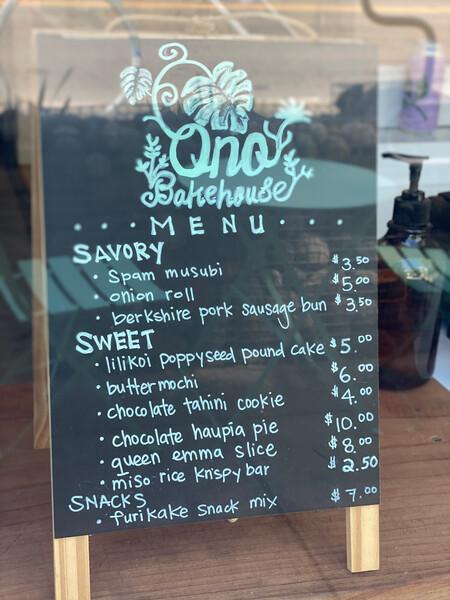 Ono
Bakehouse
MENU
SAVORY
• Spam musubi $3.50
• onion roll $5.00
• berkshire pork sausage bun $3.50
SWEET
• lilikoi poppyseed pound cake $5.00
• buttermochi $6.00
• chocolate tahini cookie $4.00
• chocolate haupia pie $10.00
• queen emma slice $8.00
• miso rice krispy bar $2.50
SNACKS
• furikake snack mix $7.00